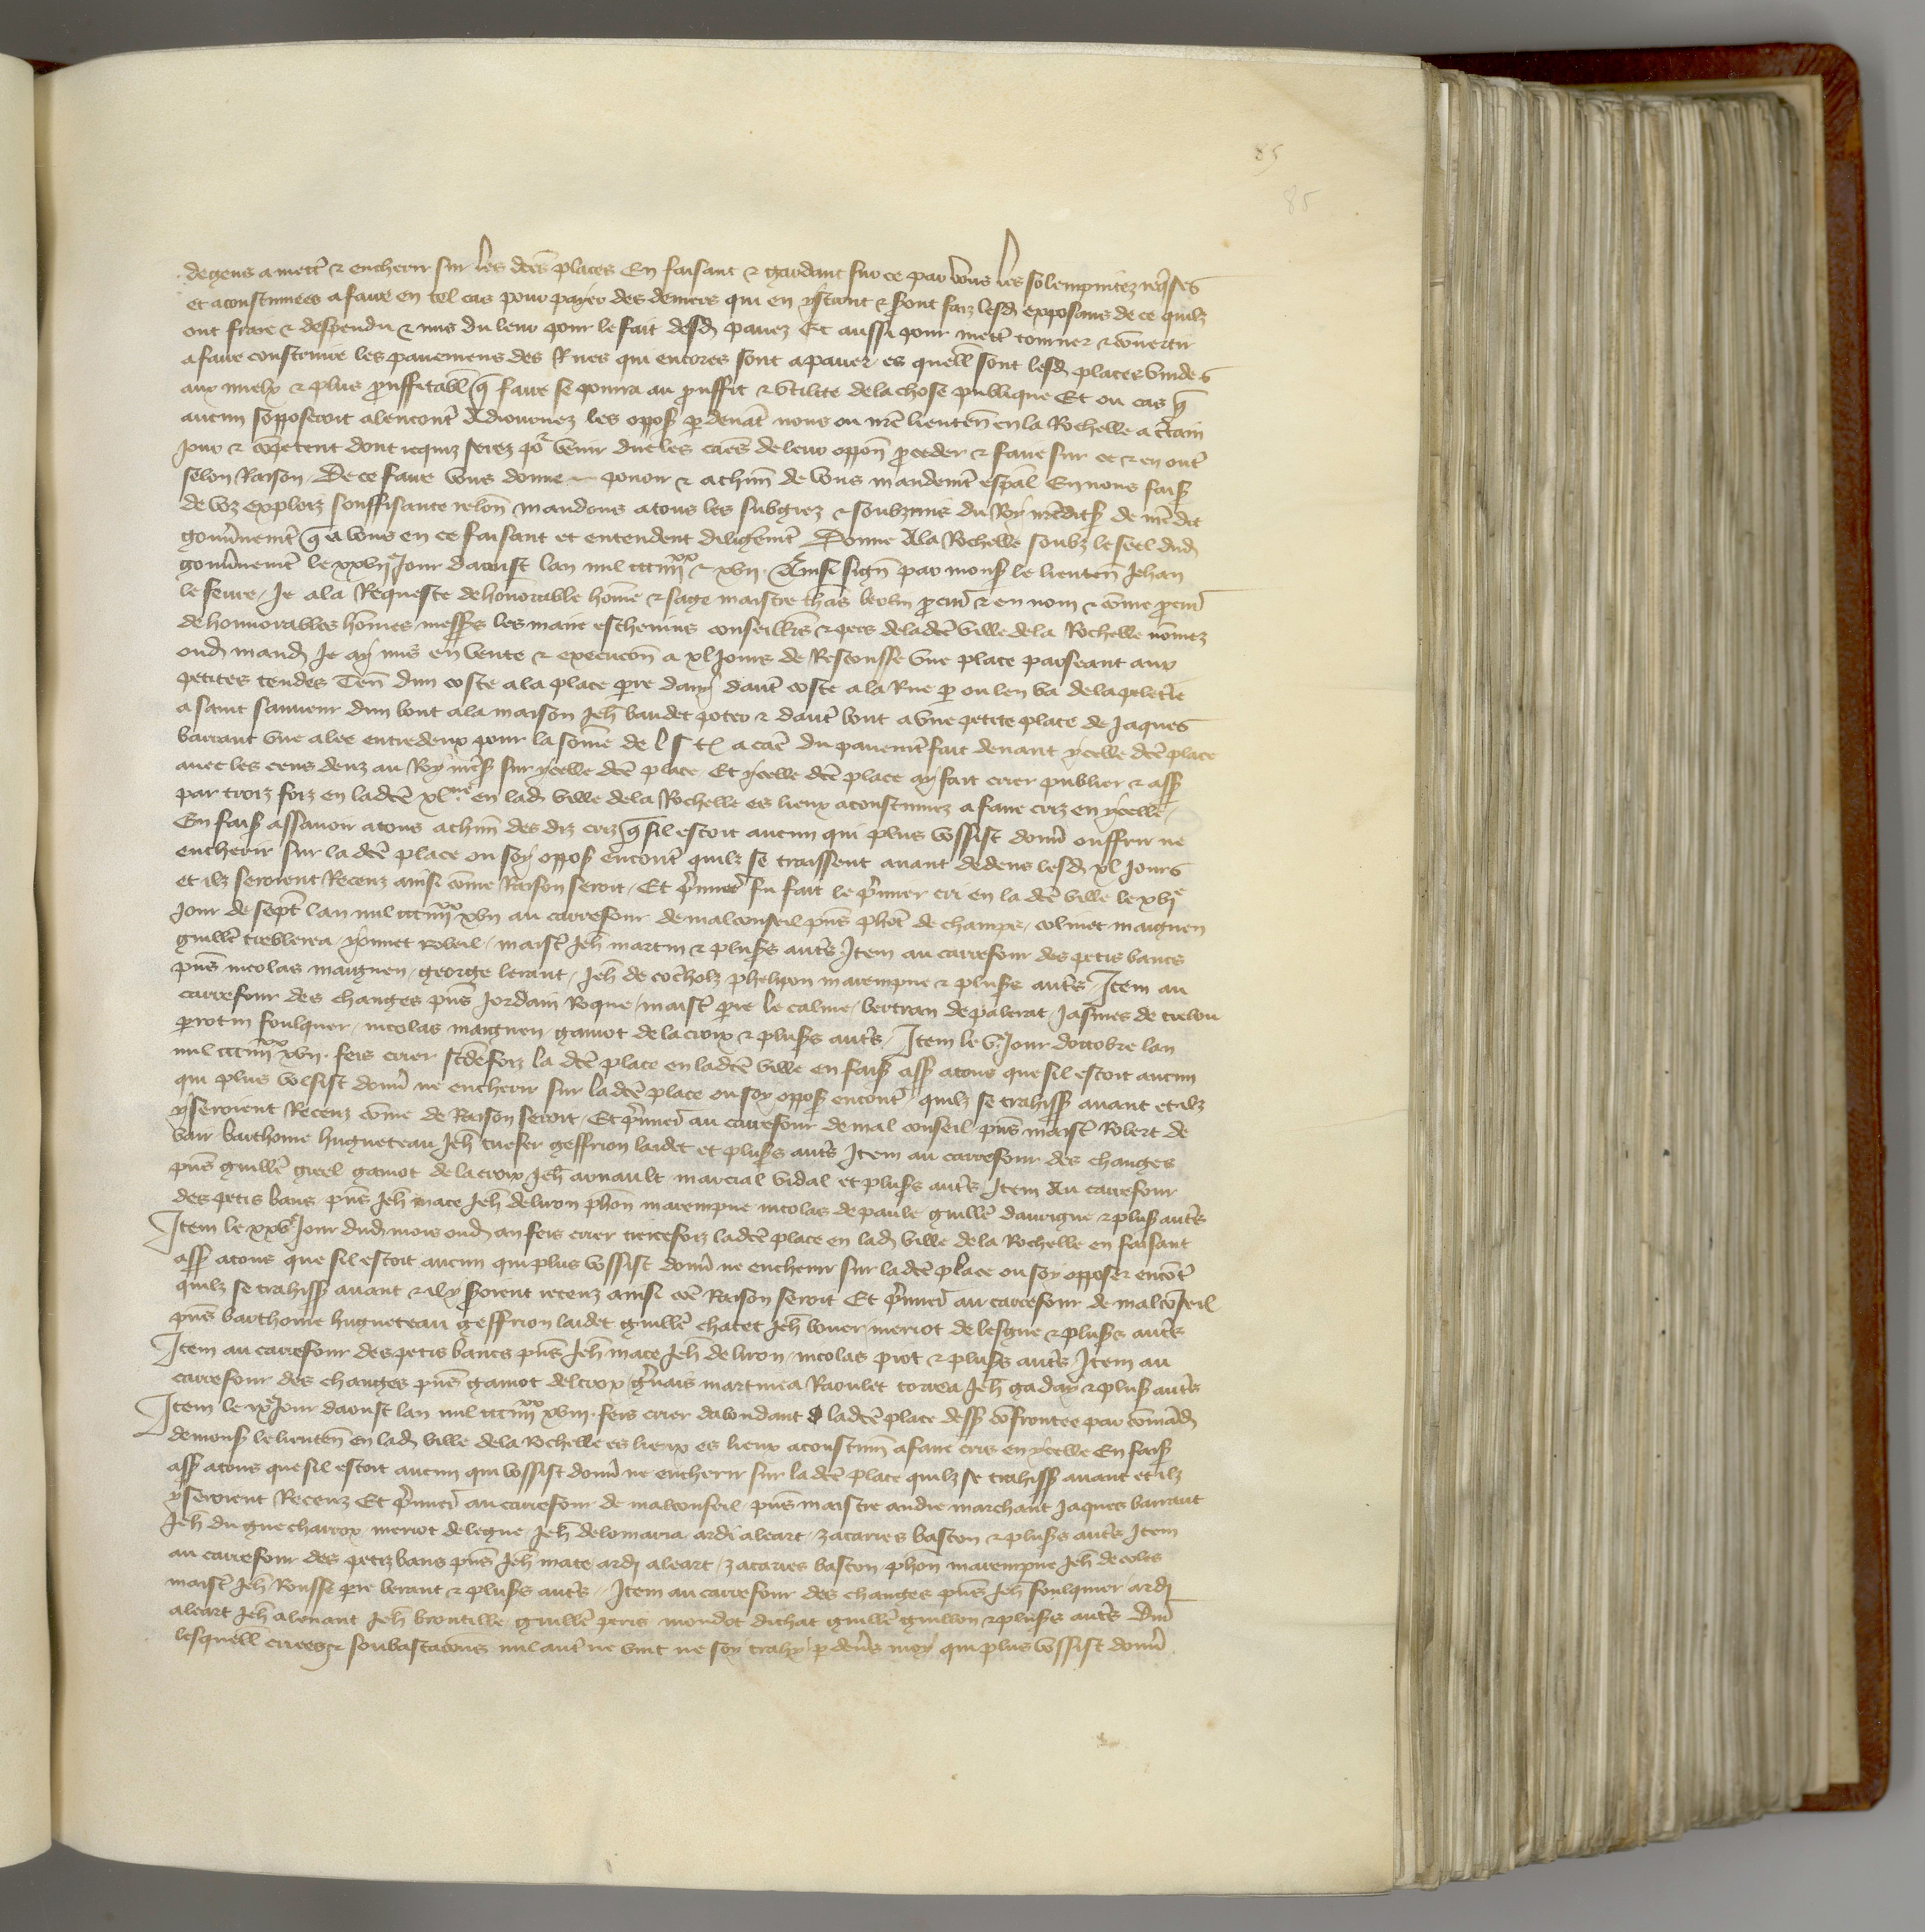 85
85
de gens a mettr̄ & encherir sur les dc̄es places En faisant & gardant sur ce par vous les solempnitez req̄ses
et acoustumees a faire en tel cas pour paier des deniers qui en ystront & s̄ront faiz lesd exposans de ce quilz
ont fraie & despendu & mis du leur pour le fait desd pavez Et aussi pour mettr̄ tourner & cōvertir
a faire construire les pavemens des Rues qui encores sont a paver es quell sont lesd places vuides
aux mielx & plus prouffitabl q̄ faire se pourra au prouffit & utilite de la chose publique Et ou cas q̄
aucun sopposeroit alencontr̄ Adiournez les oppos p devāt nous ou nr̄e lieuten̄ en la Rochelle a c̄tain
jour & cōpetent dont requiz serez po venir dire les cāes de leur oppon̄ proceder & faire sur ce & en outr̄
selon Raison De ce faire vous donne povoir & a chūn de vous mandemt esp̄al En nous fais
de voz exploiz souffisante relon̄ mandons a tous les subgiez & soubzmis du Roy nr̄edits de nr̄e dit
gouv̄nemt q̄ a vous en ce faisant et entendent diligēmt Donne Ala Rochelle soubz le seel dud
gouv̄nemt le xxvije Jour daoust lan mil ccciiijxx & xvij. Ainsi sign̄ par mons le lieuten̄ Jehan
le fevre Je ala Requeste de honorable hōme & sage maistre thās brolin procur̄ & en nom & cōme procur̄
de honnorables hōmes mess̄rs les maire eschevins conseillers & pers de la dc̄e ville de la Rochelle nōmez
oud mand Je ay mis en vente & execucōn a xl jours de Rescousse une place parseant aux
petites tendes Ten̄ dun coste a la place pre davy dautr̄ coste a la Rue p ou len va de la peletr̄ie
a saint sauveur dun bout a la maison Jeh̄ baudet potier & dautr̄ bout a une petite place de Jaques
barraut une alee entredeux pour la sōme de l s t a cāe du pavemt fait devant ycelle dc̄e place
avec les cens deuz au Roy nr̄es sur ycelle dc̄e place Et ycelle dc̄e place ay fait crier publier & ass
par troiz foiz en ladc̄e xlne en lad ville de la Rochelle es lieux acoustumez a faire criz en ycelle
En fais assavoir a tous a chūn des diz criz q̄ sil estoit aucun qui plus vossist donn̄ ouffrir ne
encherir sur la dc̄e place ou soy oppos encontr̄ quilz se traissent avant dedens lesd xl jours
et ilz seroient Recenz ainsi cōme Raison seroit Et p̄mier̄ fu fait le p̄mier cri en la dc̄e ville le xvje
jour de sept̄ lan mil ccciiijxx xvij au carrefour de malconseil pn̄s phōt de champs colinet maignen
guillē treblerea yonnet roveil maistr̄ Jeh̄ martin & plus̄rs autr̄s Item au carrefour des petis bancs
pn̄s nicolas maignen george lerant Jeh̄ de cocholz phelipon marempne & plus̄rs autr̄s Item au
carrefour des changes pn̄s Jordain Roque maistr̄ pre le calme bertran de palerat Jasmes de trelou
perotin foulquer nicolas maignen gamot de la croix & plus̄rs autr̄s Item le ve Jour doctobre lan
mil ccciiijxx xvij. feis crier scdēfoiz la dc̄e place en ladc̄e ville en fais ass a tous que sil estoit aucun
qui plus volsist donn̄ ne encherir sur la dc̄e place ou soy oppos encontr̄ quilz se trahiss avant et ilz
y seroient Recenz cōme de Raison seroit Et p̄mier̄ au carrefour de mal conseil pn̄s maistr̄ Robert de
vair barthome hugueteau Jeh̄ tuefer geffrion laidet et plus̄rs autr̄s Item au carrefour des changes
pn̄s guillē gieel gamot de la croix Jeh̄ arnault marcial vidal et plus̄rs autr̄s Item Au carrefour
des petis bans pn̄s Jeh̄ mace Jeh̄ de luron phōn marempne nicolas de paule guillē daurigne & plus̄ autr̄s
Item le xxve Jour dud mois oud an feis crier tiercefoiz ladc̄e place en lad ville de la Rochelle en faisant
ass a tous que sil estoit aucun qui plus vossist donn̄ ne encherir sur la dc̄e place ou soy opposer encōtr̄
quilz se trahiss avant & il y s̄roient recenz ainsi cōe Raison seroit Et p̄mier̄ au carrefour de malcōseil
pn̄s barthome hugueteau geffrion laidet guillē chatet Jeh̄ bouer meriot de lesgne & plus̄rs autr̄s
Item au carrefour des petis bancs pn̄s Jeh̄ mace Jeh̄ de luron nicolas piot & plus̄rs autr̄s Item au
carrefour des changes pn̄s gamot delcroix ḡvais martinea Raoulet correa Jeh̄ gaday & plus̄ autr̄s
Item le ixe Jour daoust lan mil ccciiijxx xviij. feis crier dabondant ladc̄e place dess cōfrontee par cōmād
de mons le lieuten̄ en lad ville de la Rochelle es lieux es lieux acoustum̄ a faire cris en ycelle En fais
ass a tous que sil estoit aucun qui vossist donn̄ ne encherir sur la dc̄e place quilz se trahiss avant et ilz
y seroient Recenz Et p̄mier̄ au carrefour de malconseil pn̄s maistre andre marchant Jaques barraut
Jeh̄ du gue charrox meriot de legne Jeh̄ delomaria ardi aleart zacaries baston & plus̄rs autr̄s Item
au carrefour des petiz bans pn̄s Jeh̄ mace ardj aleart zacaries baston phōn marempne Jeh̄ de coles
maistr̄ Jeh̄ Roussi pre berant & plus̄rs autr̄s Item au carrefour des changes pn̄s Jeh̄ foulquier ardj
aleart Jeh̄ alonant Jeh̄ broutille guillē peris mondot dichat guillē guillon & plus̄rs autr̄s Dur̄
lesquell criees & soubastacōns nul autr̄ ne vint ne soy trahy p dev̄s moy qui plus vossist donn̄